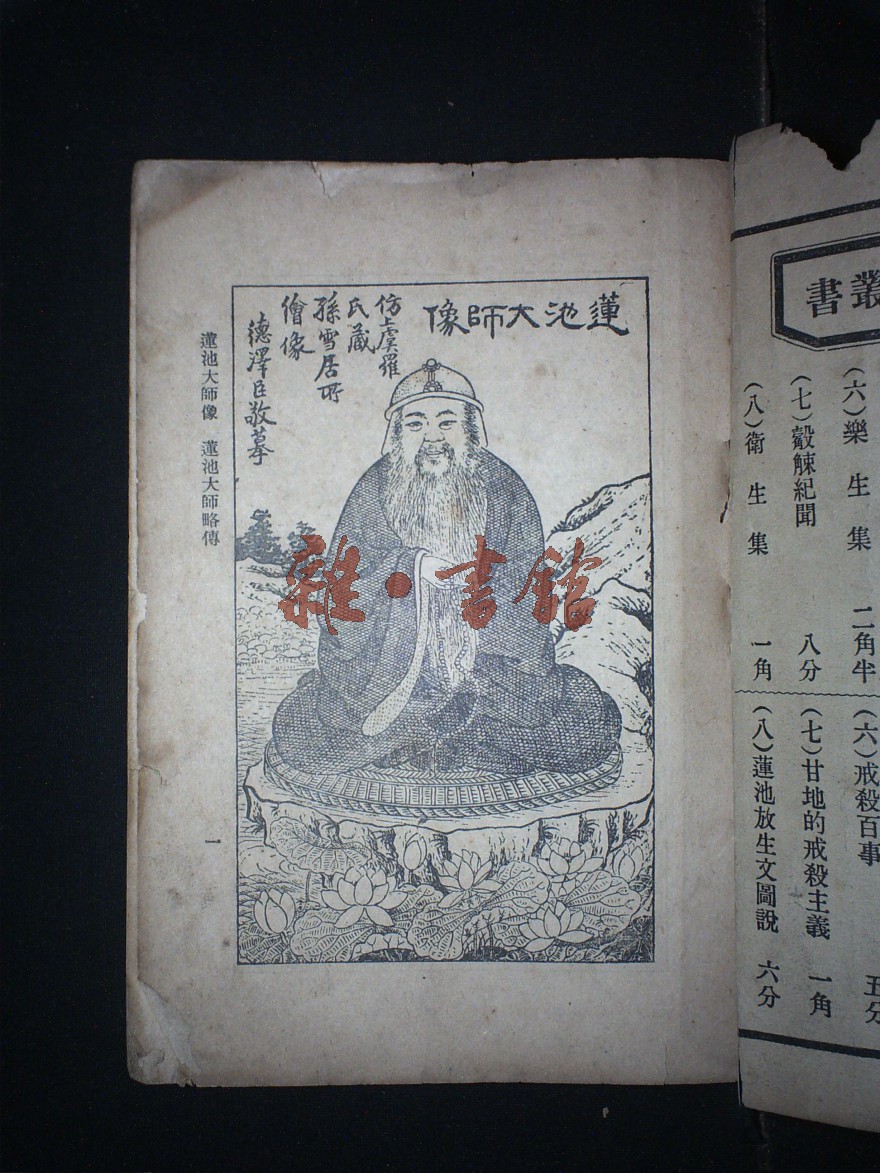 叢書
(六)樂生集 二角半
(七)觳觫紀聞 八分
(八)衛生集 一角
(六)戒殺百事 五分
(七)甘地的戒殺主義 一角
(八)蓮池放生文圖說 六分
蓮池大師像
仿上虞羅
氏藏
孫雪居所
繪像
德澤臣敬摹
蓮池大師像 蓮池大師略傳
一
雜·書館